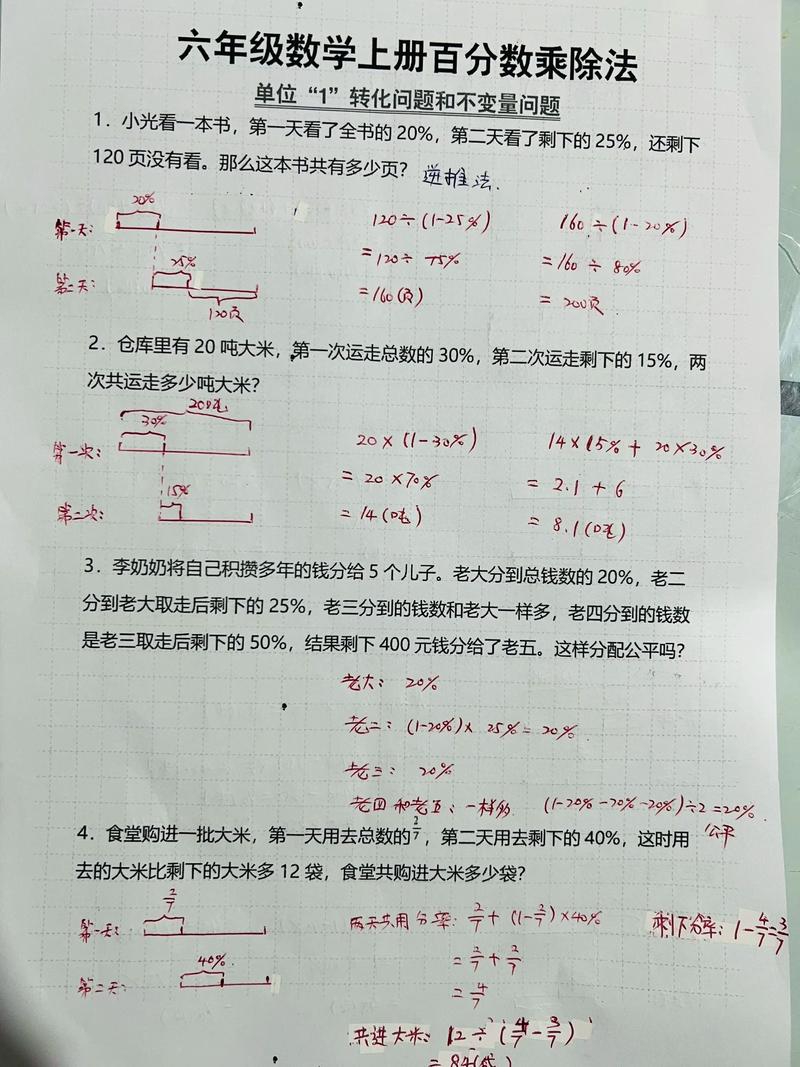 六年级数学上册百分数乘除法
单位“1”转化问题和不变量问题
1．小光看一本书，第一天看了全书的20%，第二天看了剩下的25%，还剩下
120页没有看。那么这本书共有多少页？ 逆推法.
20%
第一天：
25%
第二天：
120页
120÷(1-25%)
=120÷75%
=160(页)
160÷(1-20%)
=160÷80%
=200页
2．仓库里有20吨大米，第一次运走总数的30%，第二次运走剩下的15%，两
次共运走多少吨大米？
20吨
30%
第一次：
15%
第二次：
20×(1-30%)
=20×70%
=14(吨)
14×15%+20×30%
=2.1+6
=8.1(吨)
3．李奶奶将自己积攒多年的钱分给5个儿子。老大分到总钱数的20%，老二
分到老大取走后剩下的25%，老三分到的钱数和老大一样多，老四分到的钱数
是老三取走后剩下的50%，结果剩下400元钱分给了老五。这样分配公平吗？
老大： 20%
老二：(1-20%)×25%=20%
老三： 20%
老四和老五：一样多 (1-20%-20%-20%)÷2=20%.
公平
4．食堂购进一批大米，第一天用去总数的2/7，第二天用去剩下的40%，这时用
去的大米比剩下的大米多12袋，食堂共购进大米多少袋？
2/7
第一天：
40%
第二天：
两天共用分率：2/7+(1-2/7)×40%
=2/7+2/7
=4/7
剩下分率：1-4/7=3/7
共进大米：12÷(4/7-3/7)
=84(袋)